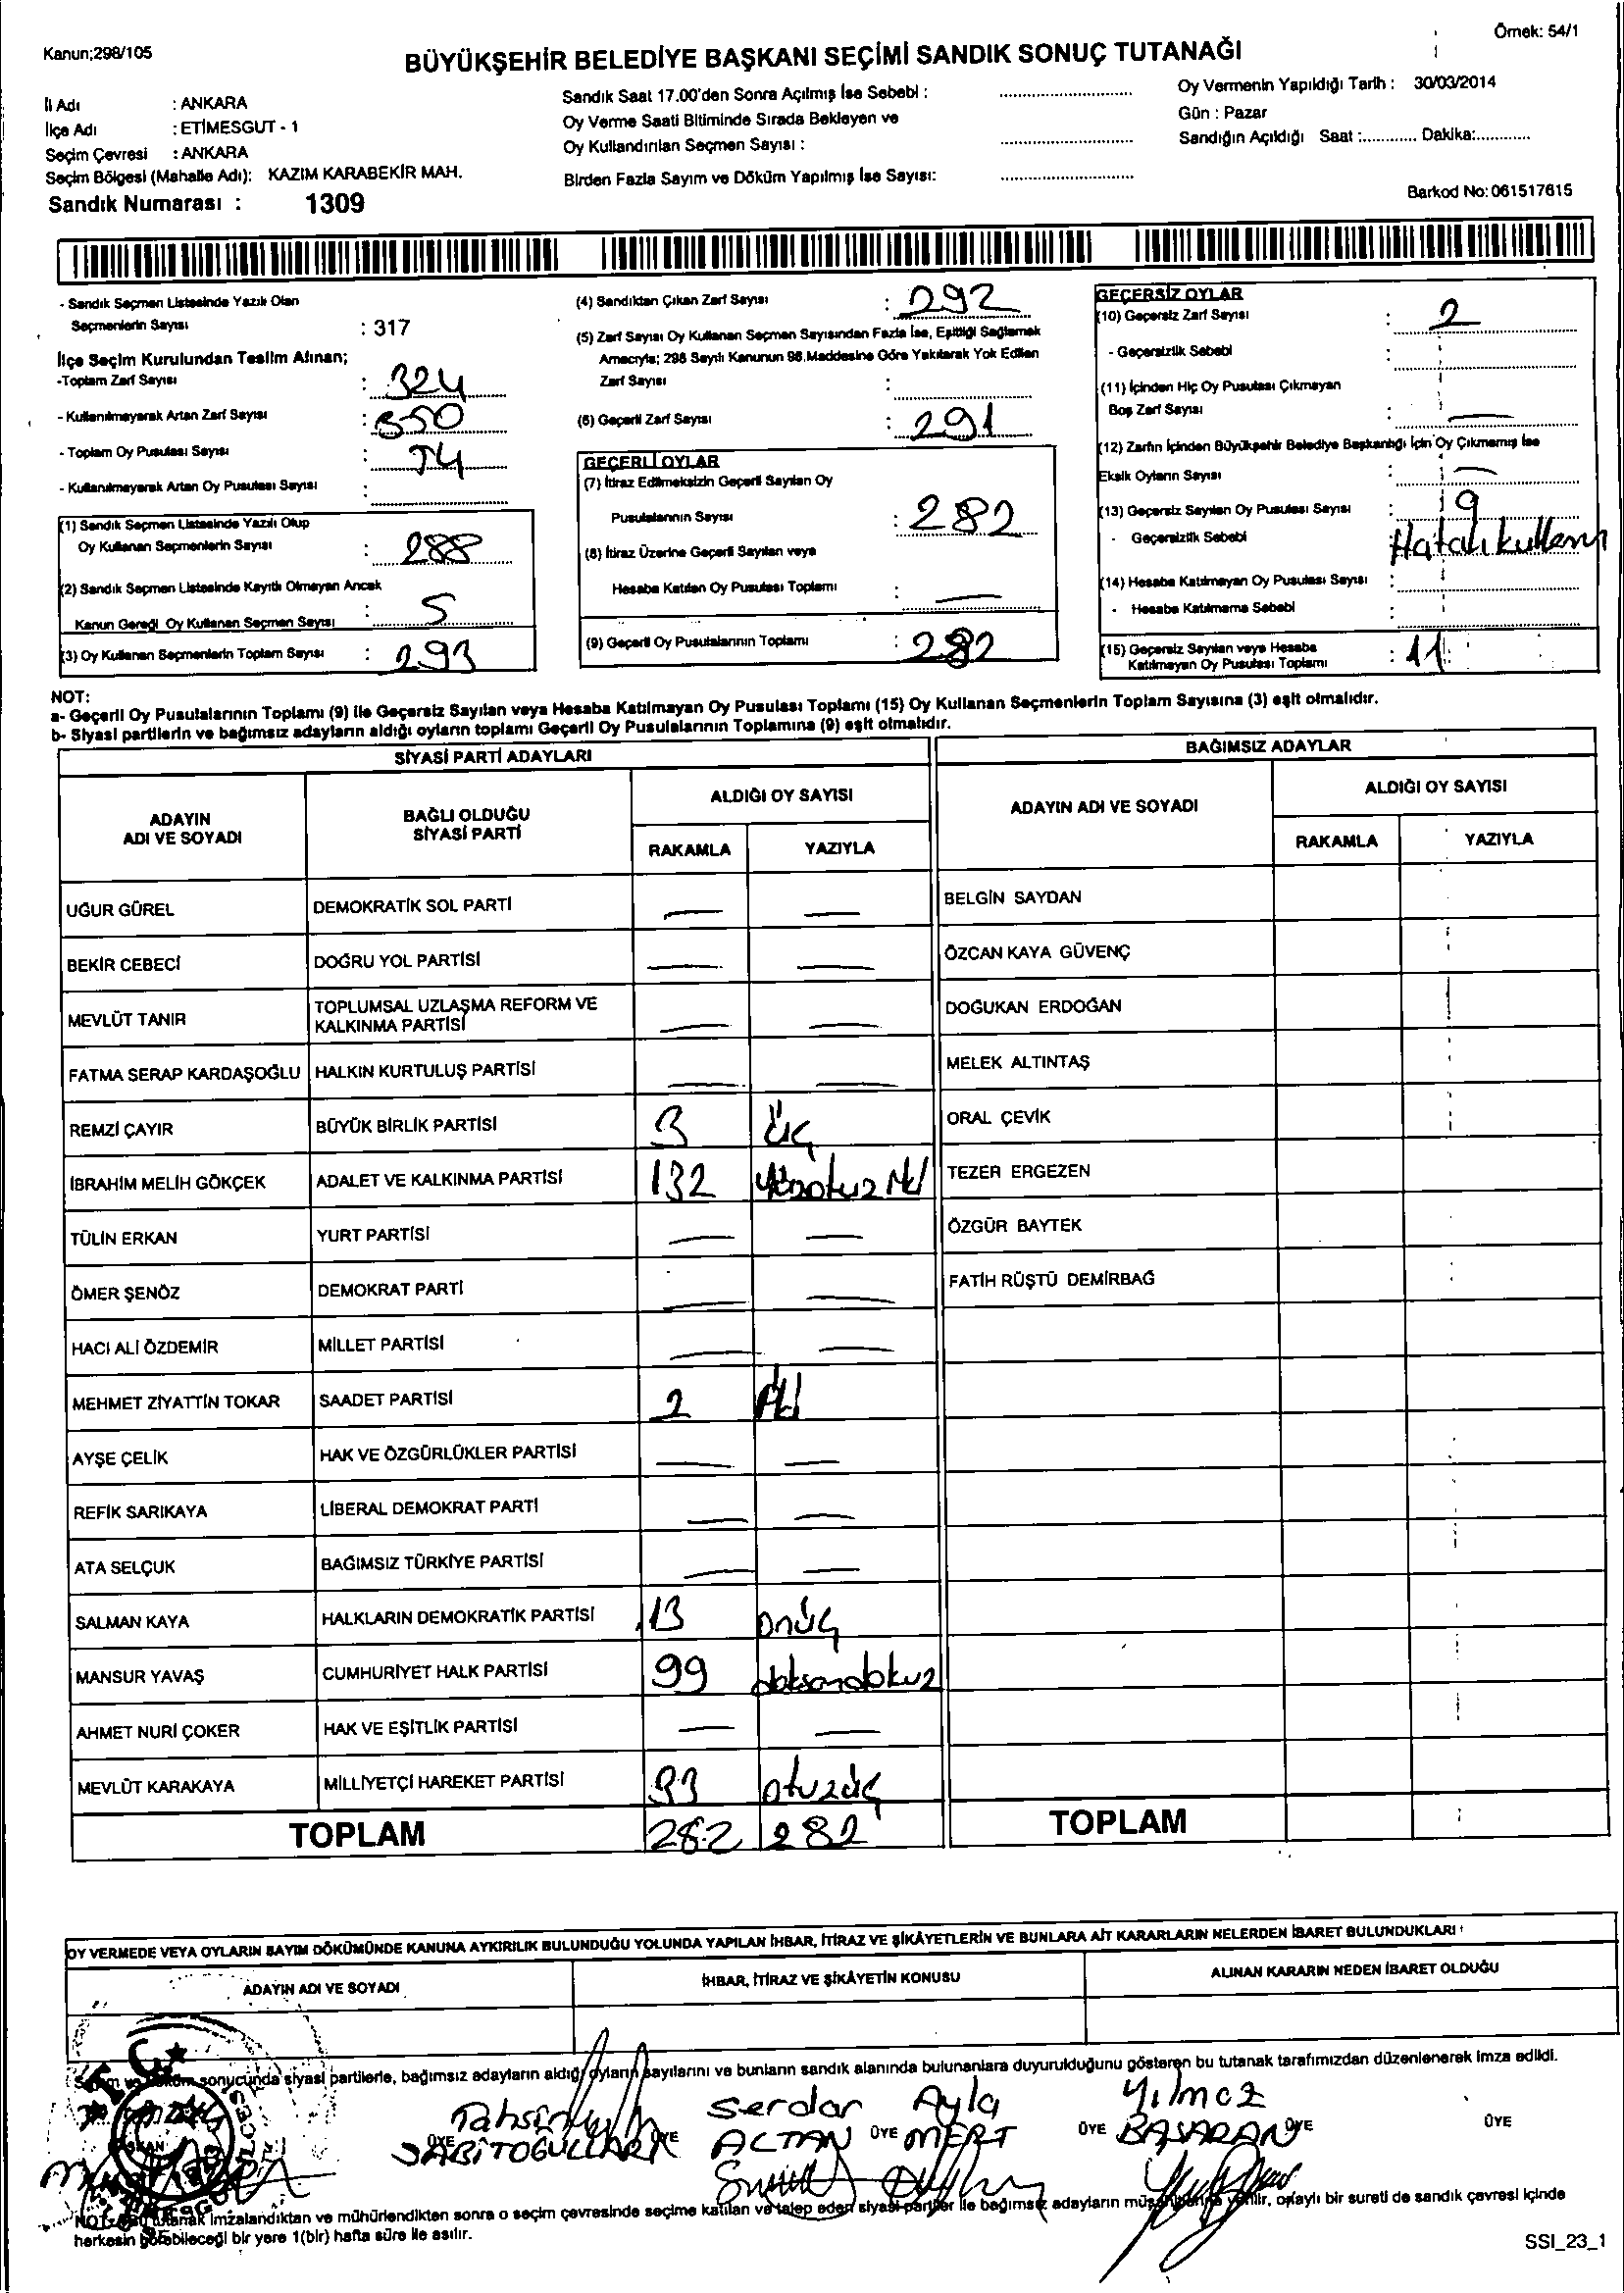 Kanun;298/105
Örnek: 54/1
BÜYÜKŞEHİR BELEDİYE BAŞKANI SEÇİMİ SANDIK SONUÇ TUTANAĞI
İl Adı : ANKARA
İlçe Adı : ETİMESGUT - 1
Seçim Çevresi : ANKARA
Seçim Bölgesi (Mahalle Adı): KAZIM KARABEKİR MAH.
Sandık Numarası : 1309
Sandık Saat 17.00'den Sonra Açılmış İse Sebebi :
Oy Verme Saati Bitiminde Sırada Bekleyen ve
Oy Kullandırılan Seçmen Sayısı :
Birden Fazla Sayım ve Döküm Yapılmış İse Sayısı:
Oy Vermenin Yapıldığı Tarih : 30/03/2014
Gün : Pazar
Sandığın Açıldığı Saat :............ Dakika:............
Barkod No: 061517615
- Sandık Seçmen Listesinde Yazılı Olan
Seçmenlerin Sayısı : 317
İlçe Seçim Kurulundan Teslim Alınan;
-Toplam Zarf Sayısı : 324
- Kullanılmayarak Artan Zarf Sayısı : 350
- Toplam Oy Pusulası Sayısı : 74
- Kullanılmayarak Artan Oy Pusulası Sayısı :
(1) Sandık Seçmen Listesinde Yazılı Olup
Oy Kullanan Seçmenlerin Sayısı : 288
(2) Sandık Seçmen Listesinde Kayıtlı Olmayan Ancak
Kanun Gereği Oy Kullanan Seçmen Sayısı : 5
(3) Oy Kullanan Seçmenlerin Toplam Sayısı : 293
(4) Sandıktan Çıkan Zarf Sayısı : 292
(5) Zarf Sayısı Oy Kullanan Seçmen Sayısından Fazla İse, Eşitliği Sağlamak
Amacıyla; 298 Sayılı Kanunun 98.Maddesine Göre Yakılarak Yok Edilen
Zarf Sayısı :
(6) Geçerli Zarf Sayısı : 291
GEÇERLİ OYLAR
(7) İtiraz Edilmeksizin Geçerli Sayılan Oy
Pusulalarının Sayısı : 282
(8) İtiraz Üzerine Geçerli Sayılan veya
Hesaba Katılan Oy Pusulası Toplamı : —
(9) Geçerli Oy Pusulalarının Toplamı : 282
GEÇERSİZ OYLAR
(10) Geçersiz Zarf Sayısı : 2
- Geçersizlik Sebebi :
(11) İçinden Hiç Oy Pusulası Çıkmayan
Boş Zarf Sayısı : —
(12) Zarfın İçinden Büyükşehir Belediye Başkanlığı İçin Oy Çıkmamış İse
Eksik Oyların Sayısı : —
(13) Geçersiz Sayılan Oy Pusulası Sayısı : 9
- Geçersizlik Sebebi : Hatalı kullanım
(14) Hesaba Katılmayan Oy Pusulası Sayısı :
- Hesaba Katılmama Sebebi :
(15) Geçersiz Sayılan veya Hesaba
Katılmayan Oy Pusulası Toplamı : 11
NOT:
a- Geçerli Oy Pusulalarının Toplamı (9) ile Geçersiz Sayılan veya Hesaba Katılmayan Oy Pusulası Toplamı (15) Oy Kullanan Seçmenlerin Toplam Sayısına (3) eşit olmalıdır.
b- Siyasi partilerin ve bağımsız adayların aldığı oyların toplamı Geçerli Oy Pusulalarının Toplamına (9) eşit olmalıdır.
SİYASİ PARTİ ADAYLARI
ADAYIN ADI VE SOYADI
BAĞLI OLDUĞU SİYASİ PARTİ
ALDIĞI OY SAYISI
RAKAMLA YAZIYLA
UĞUR GÜREL DEMOKRATİK SOL PARTİ — —
BEKİR CEBECİ DOĞRU YOL PARTİSİ — —
MEVLÜT TANIR TOPLUMSAL UZLAŞMA REFORM VE KALKINMA PARTİSİ — —
FATMA SERAP KARDAŞOĞLU HALKIN KURTULUŞ PARTİSİ — —
REMZİ ÇAYIR BÜYÜK BİRLİK PARTİSİ 3 üç
İBRAHİM MELİH GÖKÇEK ADALET VE KALKINMA PARTİSİ 132 yüzotuz iki
TÜLİN ERKAN YURT PARTİSİ — —
ÖMER ŞENÖZ DEMOKRAT PARTİ — —
HACI ALİ ÖZDEMİR MİLLET PARTİSİ — —
MEHMET ZİYATTİN TOKAR SAADET PARTİSİ 2 iki
AYŞE ÇELİK HAK VE ÖZGÜRLÜKLER PARTİSİ — —
REFİK SARIKAYA LİBERAL DEMOKRAT PARTİ — —
ATA SELÇUK BAĞIMSIZ TÜRKİYE PARTİSİ — —
SALMAN KAYA HALKLARIN DEMOKRATİK PARTİSİ 13 onüç
MANSUR YAVAŞ CUMHURİYET HALK PARTİSİ 99 doksandokuz
AHMET NURİ ÇOKER HAK VE EŞİTLİK PARTİSİ — —
MEVLÜT KARAKAYA MİLLİYETÇİ HAREKET PARTİSİ 33 otuzüç
TOPLAM 282 282
BAĞIMSIZ ADAYLAR
ADAYIN ADI VE SOYADI
ALDIĞI OY SAYISI
RAKAMLA YAZIYLA
BELGİN SAYDAN
ÖZCAN KAYA GÜVENÇ
DOĞUKAN ERDOĞAN
MELEK ALTINTAŞ
ORAL ÇEVİK
TEZER ERGEZEN
ÖZGÜR BAYTEK
FATİH RÜŞTÜ DEMİRBAĞ
TOPLAM
OY VERMEDE VEYA OYLARIN SAYIM DÖKÜMÜNDE KANUNA AYKIRILIK BULUNDUĞU YOLUNDA YAPILAN İHBAR, İTİRAZ VE ŞİKÂYETLERİN VE BUNLARA AİT KARARLARIN NELERDEN İBARET BULUNDUKLARI
ADAYIN ADI VE SOYADI
İHBAR, İTİRAZ VE ŞİKÂYETİN KONUSU
ALINAN KARARIN NEDEN İBARET OLDUĞU
sonucunda siyasi partilerle, bağımsız adayların aldığı oyların sayılarını ve bunların sandık alanında bulunanlara duyurulduğunu gösteren bu tutanak tarafımızdan düzenlenerek imza edildi.
T.C.
Tahsin Serdar Ayla Yılmaz
ÜYE ÜYE ÜYE ÜYE ÜYE ÜYE
SABİTOĞULLARI ALTAN MERT BAŞARAN
tutanak imzalandıktan ve mühürlendikten sonra o seçim çevresinde seçime katılan ve talep eden siyasi partiler ile bağımsız adayların verilir, onaylı bir sureti de sandık çevresi içinde
herkesin görebileceği bir yere 1(bir) hafta süre ile asılır.
SSI_23_1